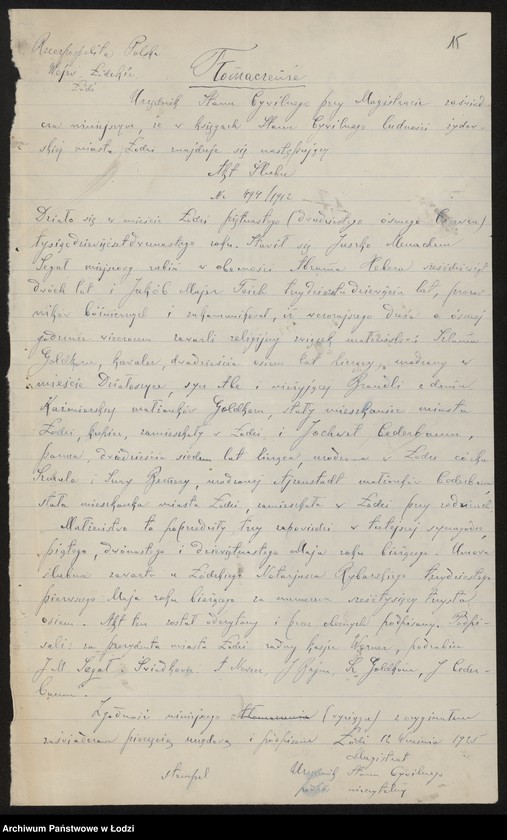 15
Rzeczpospolita Polska
Wojew. Łódzkie
Łódź
Tłomaczenie
Urzędnik Stanu Cywilnego przy Magistracie zaświad-
cza niniejszym, że w księgach Stanu Cywilnego ludności żydow-
skiej miasta Łodzi znajduje się następujący
Akt Ślubu
№ 494/1912
Działo się w mieście Łodzi piętnastego (dwudziestego ósmego Czerwca)
tysiąc dziewięćset dwunastego roku. Stawił się Menachem
Segał miejscowy rabin w obecności Abrama sześćdziesiąt
dwóch lat i Jakób Majer trzydzieści dziewięciu lat,
bóżniczych i zakomunikował, iż wczorajszego dnia o ósmej
godzinie wieczorem zawarli religijny związek małżeński: Szlama
Goldkorn, kawaler, dwadzieścia osiem lat liczący, urodzony w
mieście Działoszyce, syn Abe i nieżyjącej z domu
Kazimierskiej małżonków Goldkorn, stały mieszkaniec miasta
Łodzi, kupiec, zamieszkały w Łodzi i Jochwet Cederbaum,
panna, dwadzieścia siedem lat licząca, urodzona w Łodzi córka
i Sury urodzonej małżonków Cederbaum,
stała mieszkanka miasta Łodzi, zamieszkała w Łodzi przy rodzicach.
Małżeństwo to poprzedziły trzy zapowiedzi w tutejszej synagodze,
piątego, dwunastego i dziewiętnastego Maja roku bieżącego. Umowa
ślubna zawarta u Łódzkiego Notarjusza Rybarskiego trzydziestego
pierwszego Maja roku bieżącego za numerem sześć tysięcy trzysta
osiem. Akt ten został odczytany i przez obecnych podpisany. Podpi-
sali: za prezydenta miasta Łodzi radny Werner, podrabin
J. M. Segał. Świadkowie: J. Goldkorn, J. Ceder-
baum.
Zgodność niniejszego tłomaczenia (wyciągu) z oryginałem
zaświadczam pieczęcią urzędową i podpisem Łódź 12 1925
Magistrat
stempel
Urzędnik Stanu Cywilnego
podpis nieczytelny
Archiwum Państwowe w Łodzi